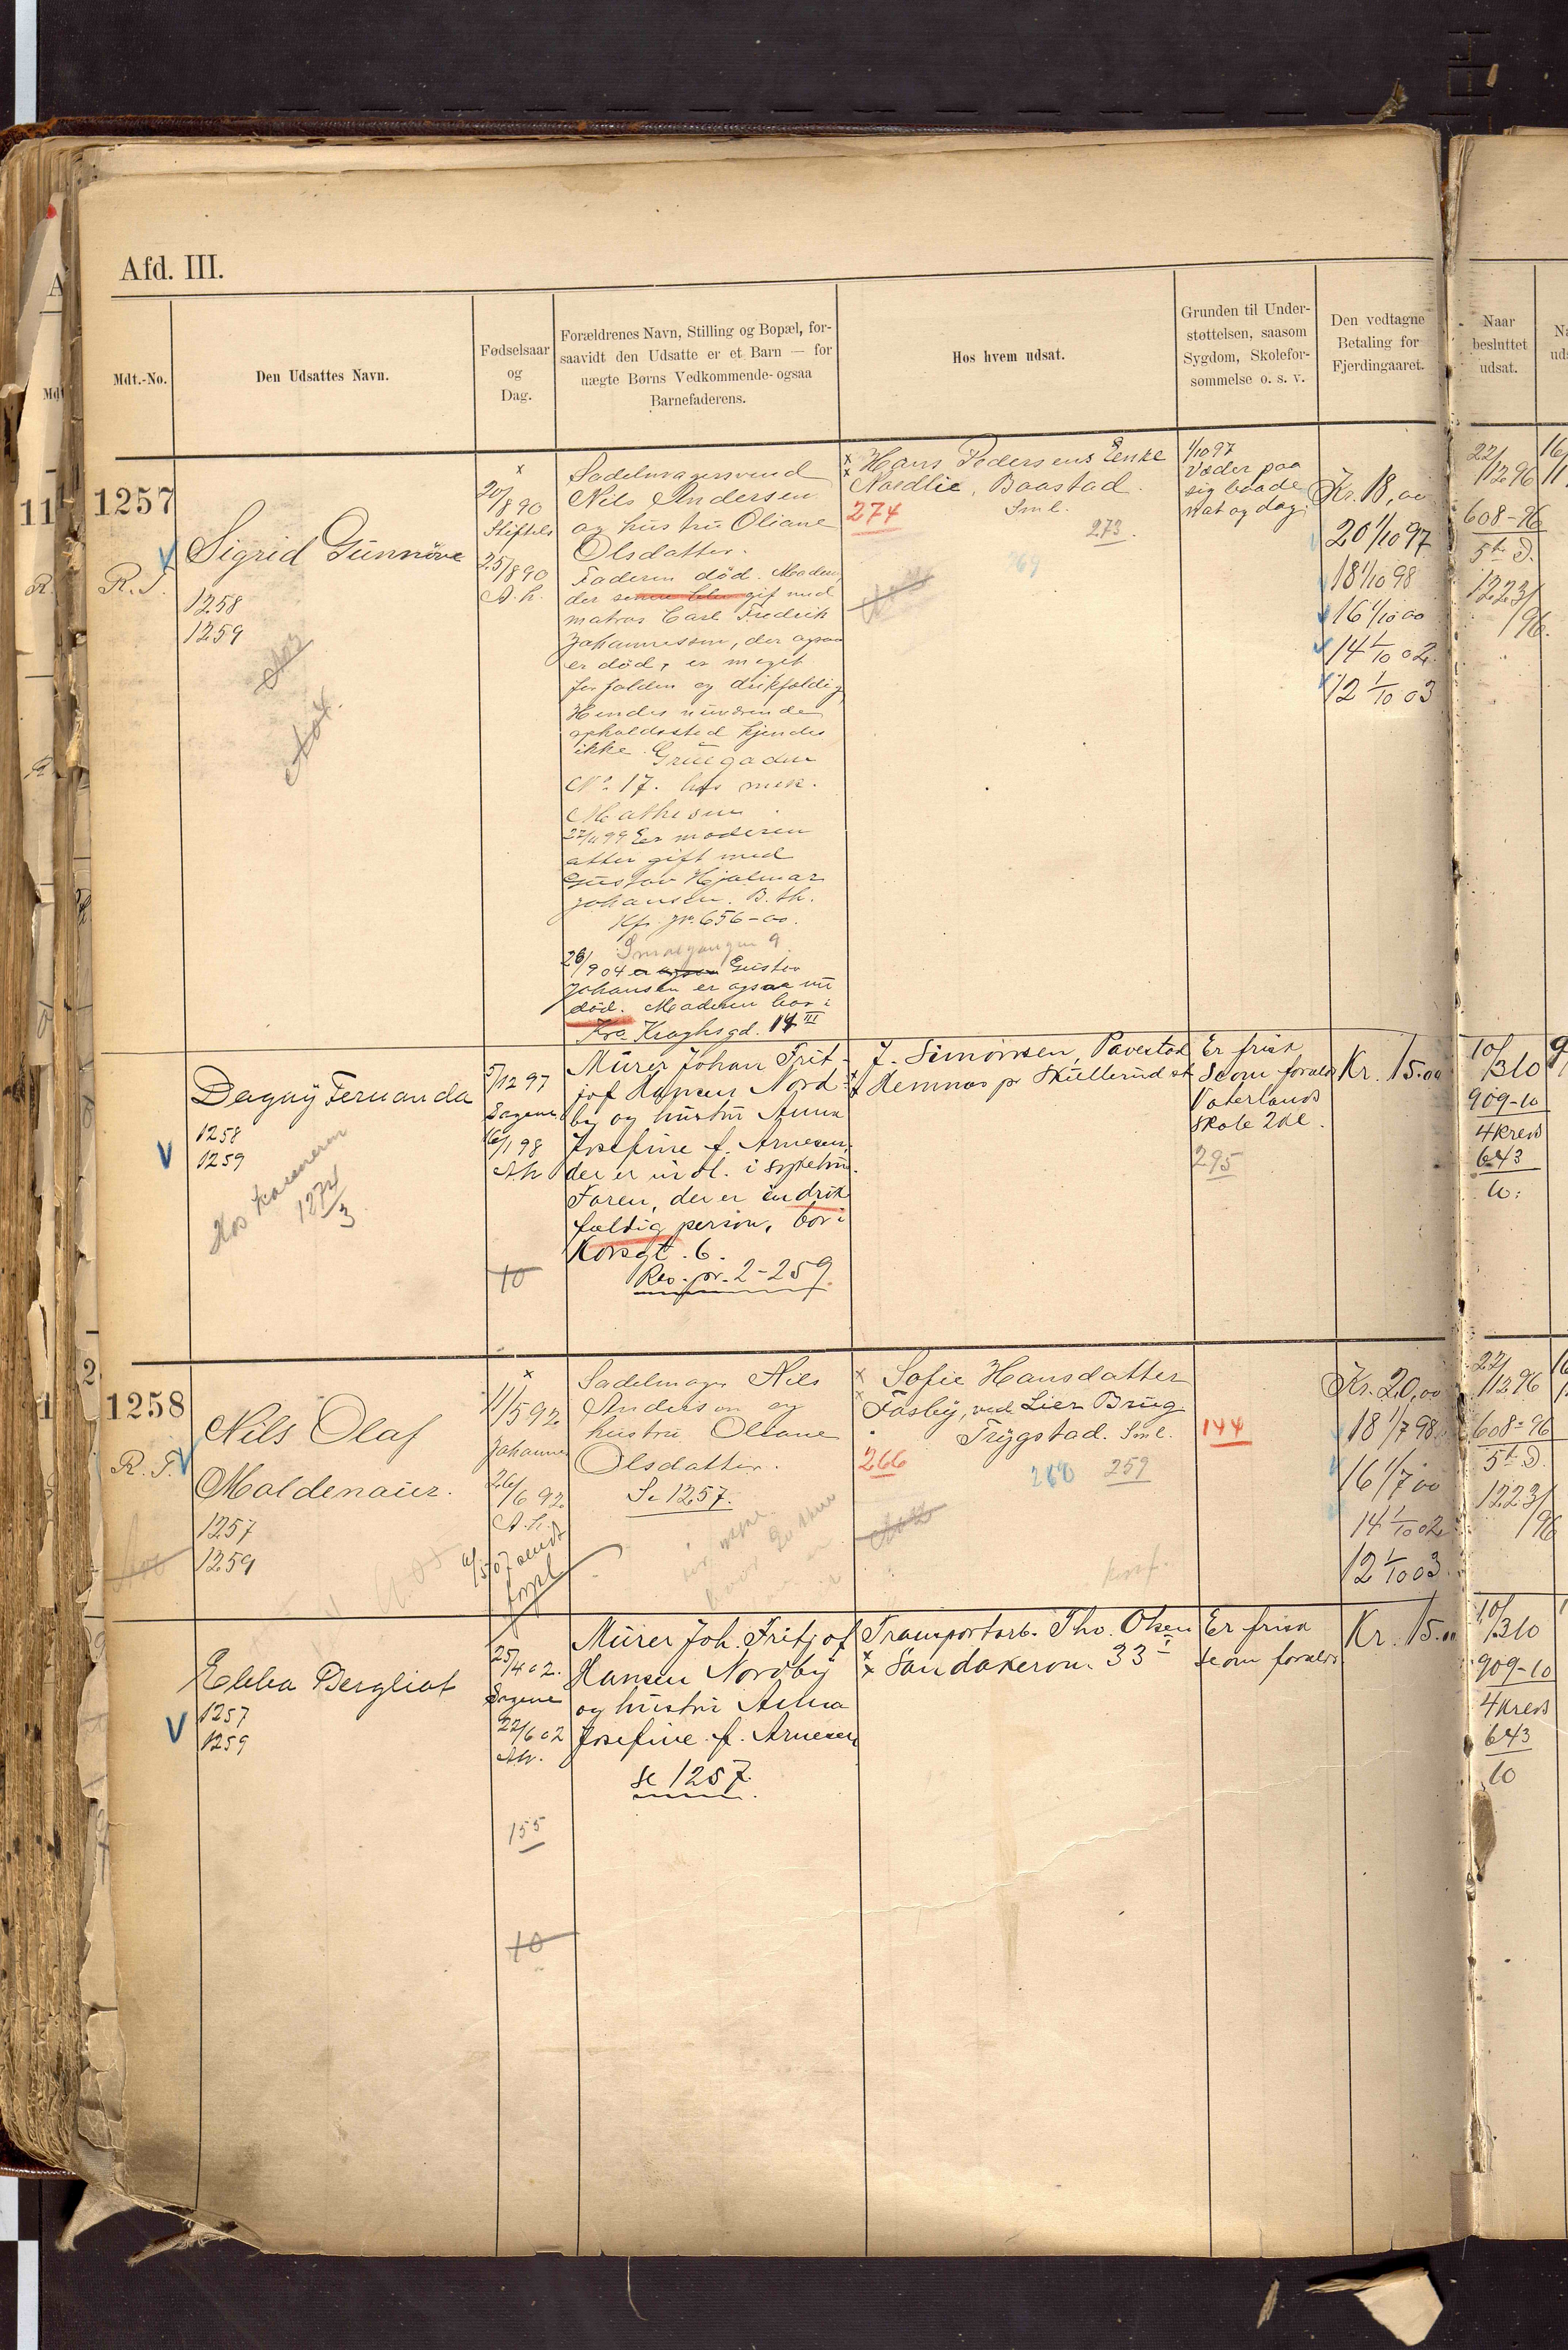 Afd. III.
Mdt.-No.
Den Udsattes Navn.
Fødselsaar
og
Dag.
Forældrenes Navn, Stilling og Bopæl, for-
saavidt den Udsatte er et Barn — for
uægte Børns Vedkommende ogsaa
Barnefaderens.
Hos hvem udsat.
Grunden til Under-
støttelsen, saasom
Sygdom, Skolefor-
sømmelse o. s. v.
Den vedtagne
Betaling for
Fjerdingaaret.
Naar
besluttet
udsat.
1257
R. T.
Sigrid Gunnöve
1258
1259
x
20/8 90
Stiftels
25/8 90
A. h.
Sadelmagersvend
Nils Andersen
og hustru Oliane
Olsdatter.
Faderen død. Moderen,
der senere blev gift med
matros Carl Fredrik
Johannessen, der ogsaa
er død, er meget
forfalden og drikfældig
Hendes nuværende
opholdssted kjendes
ikke. Grüegaden
No. 17. hos
Mathisen
27/11 99 Er moderen
atter gift med
Gustav Hjalmar
Johansen. B. th.
Kfr. jr. 656-00.
Smalgangen 9
26/9 04 er ogsaa Gustav
Johansen er ogsaa nu
død. Moderen bor i
Kra Kraghsgd. 14 III
x Hans Pedersens Enke
x Nordlie, Baastad.
Sml.
274
273
269
1/10 97
Væder paa
sig baade
nat og dag.
Kr. 18,00
20 1/10 97
18 1/10 98
16 1/10 00
14 1/10 02
12 1/10 03
22/12 96
608-96
5te D.
1223/96.
Dagny Fernanda
1258
1259
Hos kasereren
1274/3
5/12 97
Sagene
16/1 98
A.h
10
Mürer Johan Frit-
jof Hansen Nord-
by og hustru Anna
Josefine f. Arnesen,
der er indl. i sykehus.
Faren, der er en drik
fældig person, bor i
Korsgt. 6.
Rev. pr. 2-259.
J. Simonsen, Pavestad
x Hemnæs pr Skullerud st
Er frisk
Skom forældr
Vaterlands
skole 2 kl.
295
Kr. 15.00
10/3 10
909-10
4 kreds
643
10
1258
R. T.
Nils Olaf
Moldenauer.
1257
1259
x
11/5 92
Johannes
26/6 92
A. h.
Sadelmager Nils
Anderson og
hustru Oliane
Olsdatter.
Se 1257.
x Sofie Hansdatter
x Fosby, ved Lier Brug
Trygstad. Sml.
144
266
268
259
Kr. 20,00
18 1/7 98
16 1/7 00
14 1/10 02
12 1/10 03
22/12 96
608-96
5te D.
1223/96
Ebba Bergliot
1257
1259
25/4 02.
Sagene
22/6 02
Ah.
155
10
Mürer Joh. Fritjof
Hansen Nordby
og hustru Anna
Josefine f. Arnesen
se 1257.
Transportarb. Tho. Olsen
x Sandakerven 33 I
Er frisk
Skom forældr
Kr. 15.00
10/3 10
909-10
4 kreds
643
10